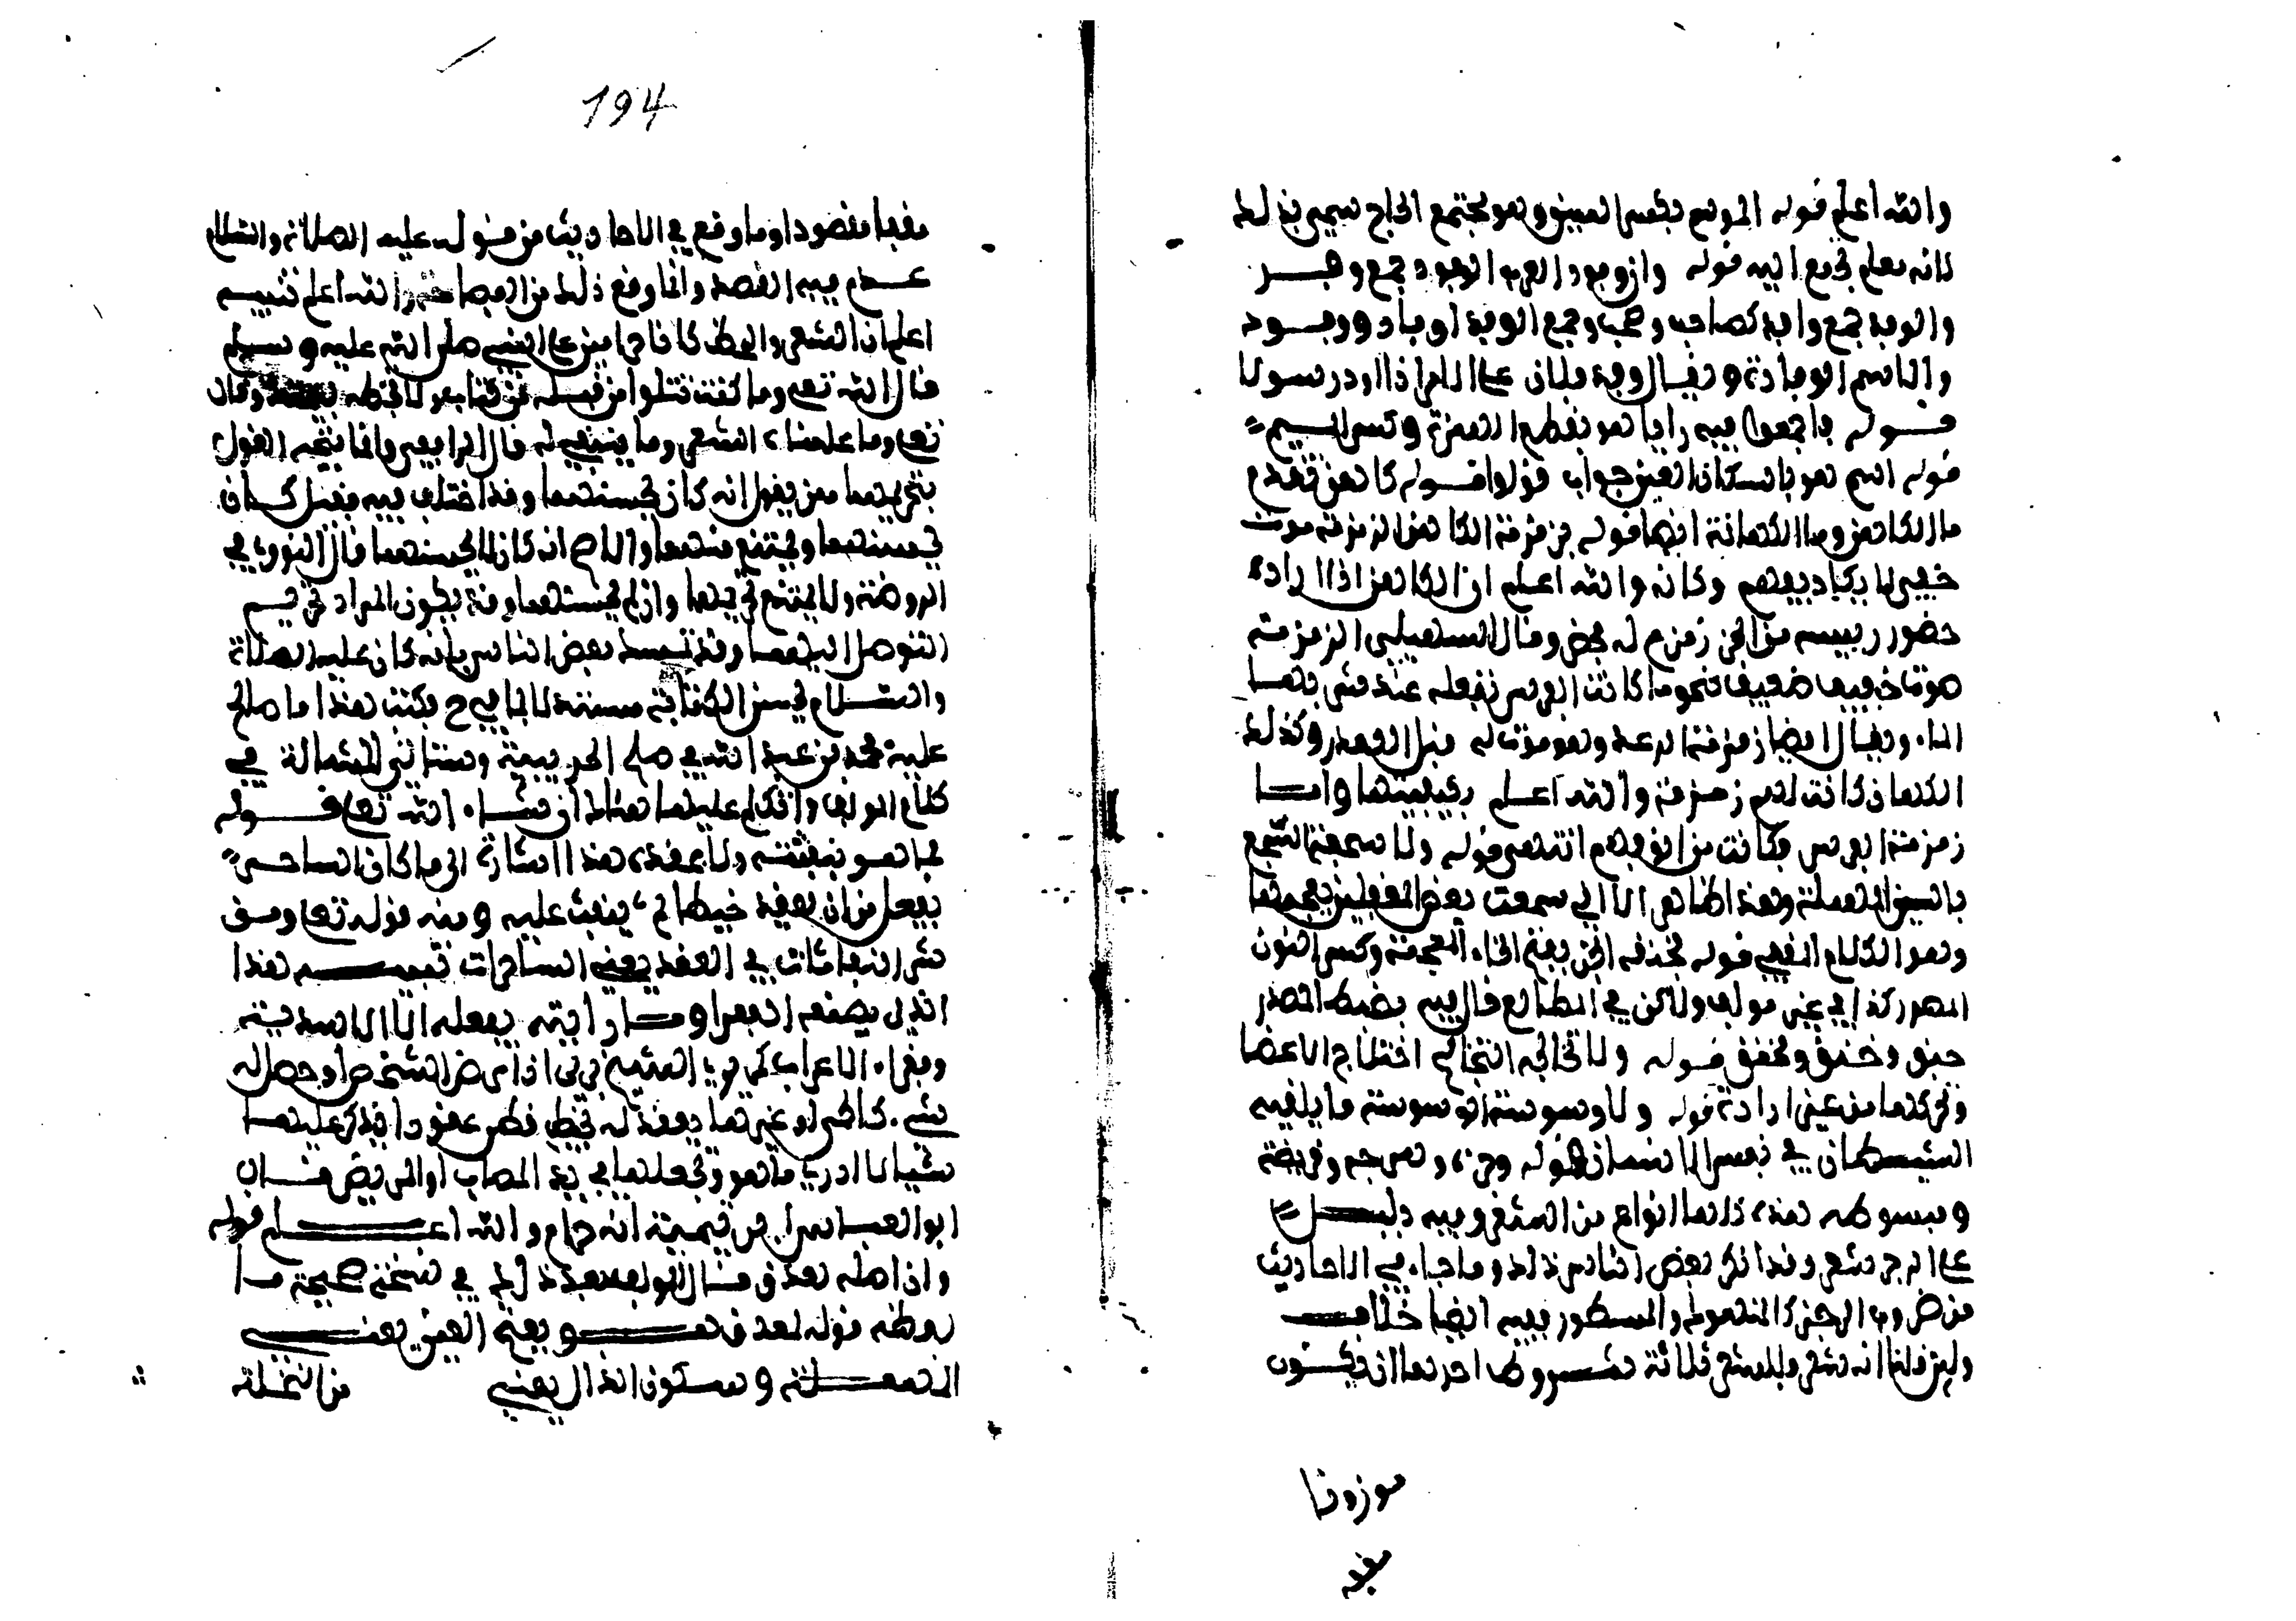 والله اعلم قوله الموسم بكسر السين وهو مجتمع الحاج سمي بذلك
لانه معلم يجمع اليه قوله وان وفود العرب الوفود جمع وفد
والوفد جمع وافد كصاحب وصحب وجمع الوفد اوفاد ووفود
والاسم الوفادة ويقال وفد فلان على الامير اذا ورد رسولا
قوله فاجمعوا فيه رايا هو بقطع الهمزة وكسر الميم
قوله اسمع هو باسكان العين جواب قولوا قوله كاهن تقدم
ما الكاهن وما الكهانة ايضا قوله بزمزمة الكاهن الزمزمة صوت
خفي لا يكاد يفهم وكانه والله اعلم ان الكاهن اذا اراد
حضور رييسه من الجن زمزم له فحضر وقال السهيلي الزمزمة
صوت خفيف ضعيف نحو ما كانت الفرس تفعله عند شربها
الماء ويقال ايضا زمزمة الرعد وهو صوت له قبل الهدر وكذلك
الكهان كانت لهم زمزمة والله اعلم بكيفيتها واما
زمزمة الفرس فكانت من انوفهم انتهى قوله ولا سجعة السجع
بالسين المهملة وهذا ظاهر الا اني سمعت بعض المغفلين يعجمها
وهو الكلام المقفى قوله بخنقه الخنق بفتح الخاء المعجمة وكسر النون
المصدر كذا في غير مولف ولاكن في المطالع قال فيه بضبط المصدر
خنق وخنق ومخنق قوله ولا تخالجه التخالج اختلاج الاعضا
وتحركها من غير ارادة قوله ولا وسوسته الوسوسة ما يلقيه
الشيطان في نفس الانسان قوله رجزه وهزجه وقريضه
ومبسوطه هذه كلها انواع من الشعر وفيه دليل
على الرجز شعر وقد انكر بعض الناس ذلك وما جاء في الاحاديث
من ضروب الرجز كالمنهوك والمسطور ففيه ايضا خلاف
ولين قلنا انه شعر فللشعر ثلاثة شروط احدها ان يكون
موزونا
مقفى
194
مقفا مقصودا وما وقع في الاحاديث من قوله عليه الصلاة والسلام
عدم فيه القصد وانما وقع ذلك من الفصاحة والله اعلم تنبيه
اعلم ان الشعر والخط كانا حرامين على النبي صلى الله عليه وسلم
قال الله تعلى وما كنت تتلوا من قبله من كتاب ولا تخطه بيمينك وقال
تعلى وما علمناه الشعر وما ينبغي له قال الرافعي وانما يتجه القول
بتحريمهما ممن يقول انه كان يحسنهما وقد اختلف فيه فقيل كان
يحسنهما ويمتنع منهما والاصح انه كان لا يحسنهما قال النووي في
الروضة ولا يمتنع تحريمهما وان لم يحسنهما وقد يكون المراد تحريم
التوصل اليهما وقد تمسك بعض الناس بانه كان عليه الصلاة
والسلام يحسن الكتابة مستندا لما في خ فكتب هذا ما صالح
عليه محمد بن عبد الله في صلح الحديبية وستاتي المسالة في
كلام المولف واتكلم عليها هنالك ان شاء الله تعلى قوله
فما هو بنفثه ولا بعقده هذا اشارة الى ما كان الساحر
يفعل من ان يعقد خيطا ثم ينفث عليه ومنه قوله تعلى ومن
شر النفاثات في العقد يعني الساحرات تنبيه هذا
الذي يصنعه الفقرا وما رايته يفعله الا الاسدية
وفقراء الاعراب كعرب العشير في بر اذا مرض الشخص او حصل له
شيء كالحمى او غيرها يعقد له خيط قطن عقود ويذكر عليها
شيا لا ادري ما هو وتجعلها في يد المصاب او المريض قال
ابو العباس بن تيمية انه حرام والله اعلم قوله
وان اصله لعذق قال المولف بعد ذلك في نسخة صحيحة ما
لفظه قوله لعذق هو بفتح العين يعني
المهملة وسكون الذال يعني من النخلة